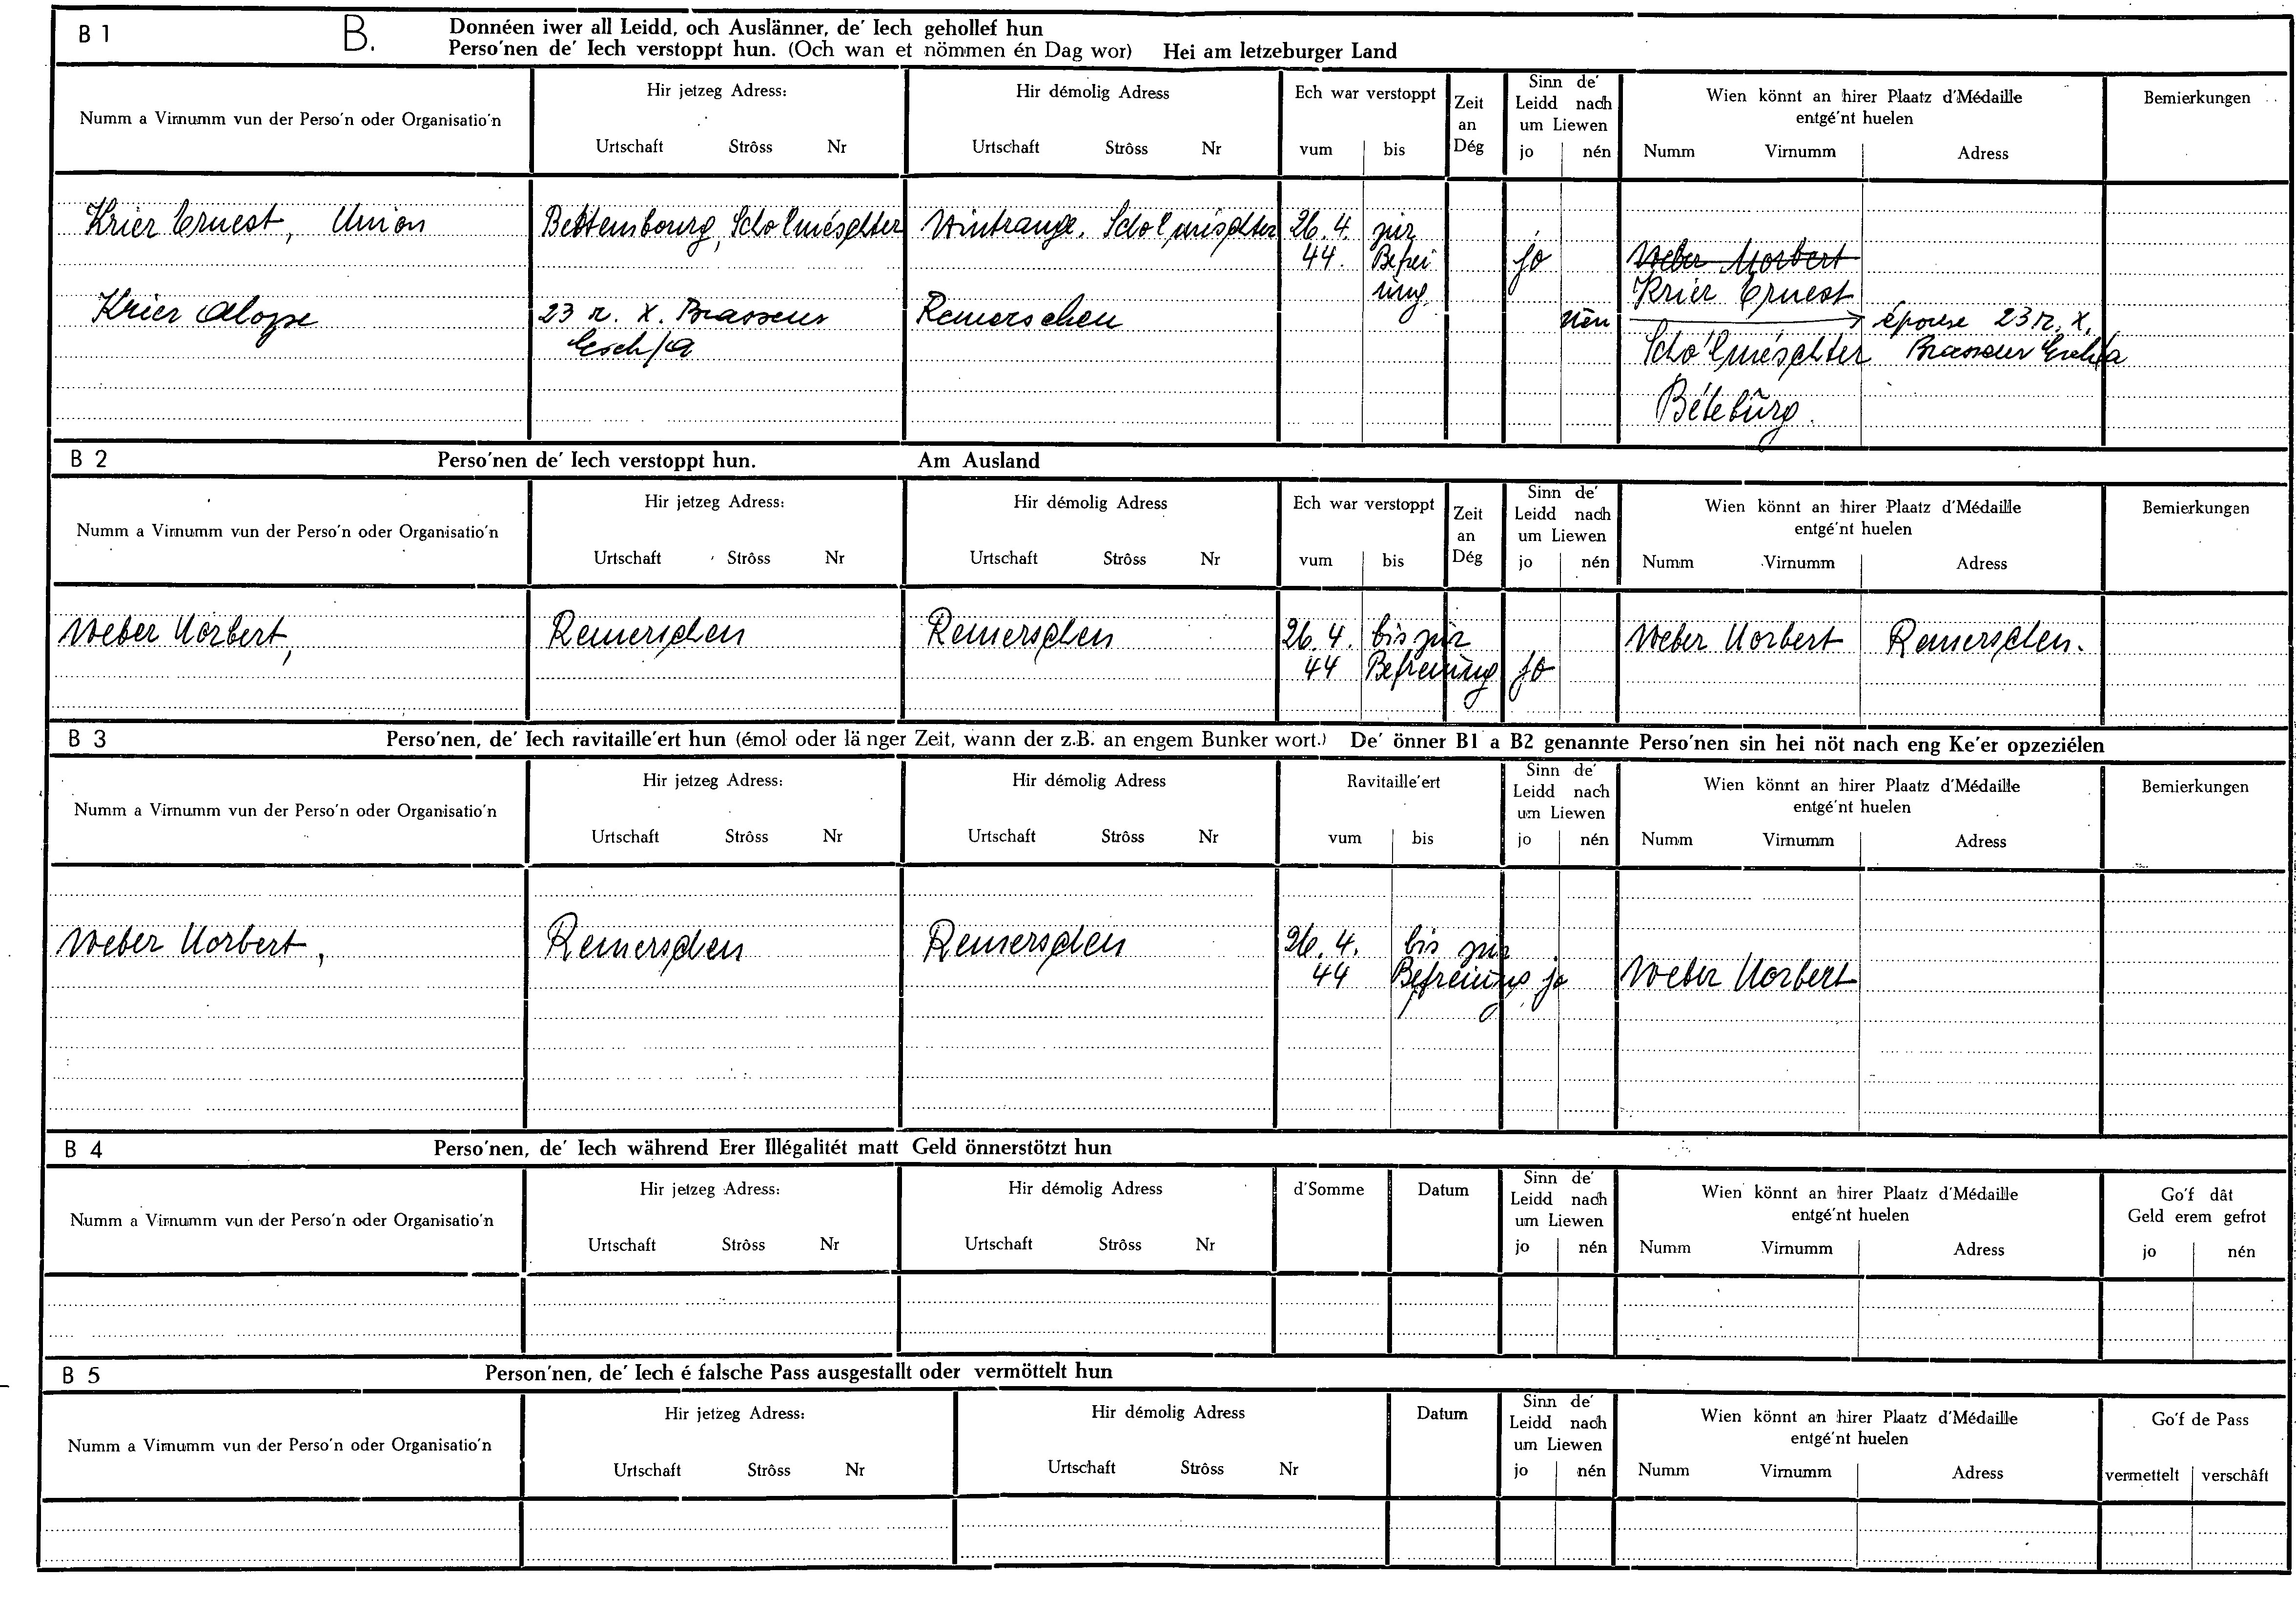 B 1 B. Donnéen iwer all Leidd, och Auslänner, de' Iech gehollef hun
Perso'nen de' Iech verstoppt hun. (Och wan et nömmen én Dag wor) Hei am letzeburger Land
Numm a Virnumm vun der Perso'n oder Organisatio'n
Hir jetzeg Adress:
Urtschaft Strôss Nr
Hir démolig Adress
Urtschaft Strôss Nr
Ech war verstoppt
vum bis
Zeit
an
Dég
Sinn de'
Leidd nach
um Liewen
jo nén
Wien könnt an hirer Plaatz d'Médaille
entgé'nt huelen
Numm Virnumm Adress
Bemierkungen
Krier Ernest, Union Bettembourg, Scho'lméschter Wintrange, Scho'lméschter 26.4. zur
44. Befrei jo Weber Norbert
ung. Krier Ernest
Krier Aloyse 23 r. X. Brasseur Remerschen nén épouse 23 r. X.
Esch/A Scho'lméschter Brasseur Esch/a
Béteburg.
B 2 Perso'nen de' Iech verstoppt hun. Am Ausland
Numm a Virnumm vun der Perso'n oder Organisatio'n
Hir jetzeg Adress:
Urtschaft Strôss Nr
Hir démolig Adress
Urtschaft Strôss Nr
Ech war verstoppt
vum bis
Zeit
an
Dég
Sinn de'
Leidd nach
um Liewen
jo nén
Wien könnt an hirer Plaatz d'Médaille
entgé'nt huelen
Numm Virnumm Adress
Bemierkungen
Weber Norbert, Remerschen Remerschen 26.4. bis zur Weber Norbert Remerschen.
44 Befreiung jo
B 3 Perso'nen, de' Iech ravitaille'ert hun (émol oder länger Zeit, wann der z.B. an engem Bunker wort.) De' önner B1 a B2 genannte Perso'nen sin hei nöt nach eng Ke'er opzeziélen
Numm a Virnumm vun der Perso'n oder Organisatio'n
Hir jetzeg Adress:
Urtschaft Strôss Nr
Hir démolig Adress
Urtschaft Strôss Nr
Ravitaille'ert
vum bis
Sinn de'
Leidd nach
um Liewen
jo nén
Wien könnt an hirer Plaatz d'Médaille
entgé'nt huelen
Numm Virnumm Adress
Bemierkungen
Weber Norbert, Remerschen Remerschen 26.4. bis zur
44 Befreiung jo Weber Norbert
B 4 Perso'nen, de' Iech während Erer Illégalitét matt Geld önnerstötzt hun
Numm a Virnumm vun der Perso'n oder Organisatio'n
Hir jetzeg Adress:
Urtschaft Strôss Nr
Hir démolig Adress
Urtschaft Strôss Nr
d'Somme
Datum
Sinn de'
Leidd nach
um Liewen
jo nén
Wien könnt an hirer Plaatz d'Médaille
entgé'nt huelen
Numm Virnumm Adress
Go'f dât
Geld erem gefrot
jo nén
B 5 Person'nen, de' Iech é falsche Pass ausgestallt oder vermöttelt hun
Numm a Virnumm vun der Perso'n oder Organisatio'n
Hir jetzeg Adress:
Urtschaft Strôss Nr
Hir démolig Adress
Urtschaft Strôss Nr
Datum
Sinn de'
Leidd nach
um Liewen
jo nén
Wien könnt an hirer Plaatz d'Médaille
entgé'nt huelen
Numm Virnumm Adress
Go'f de Pass
vermettelt verschâft